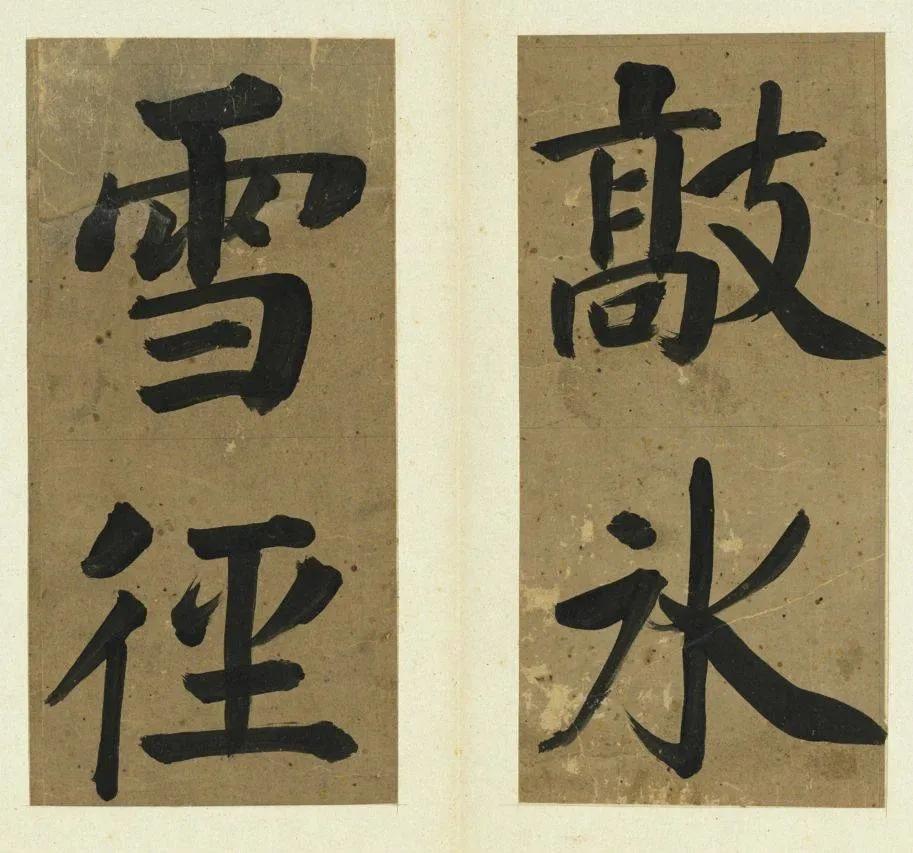 敲冰
雪徑